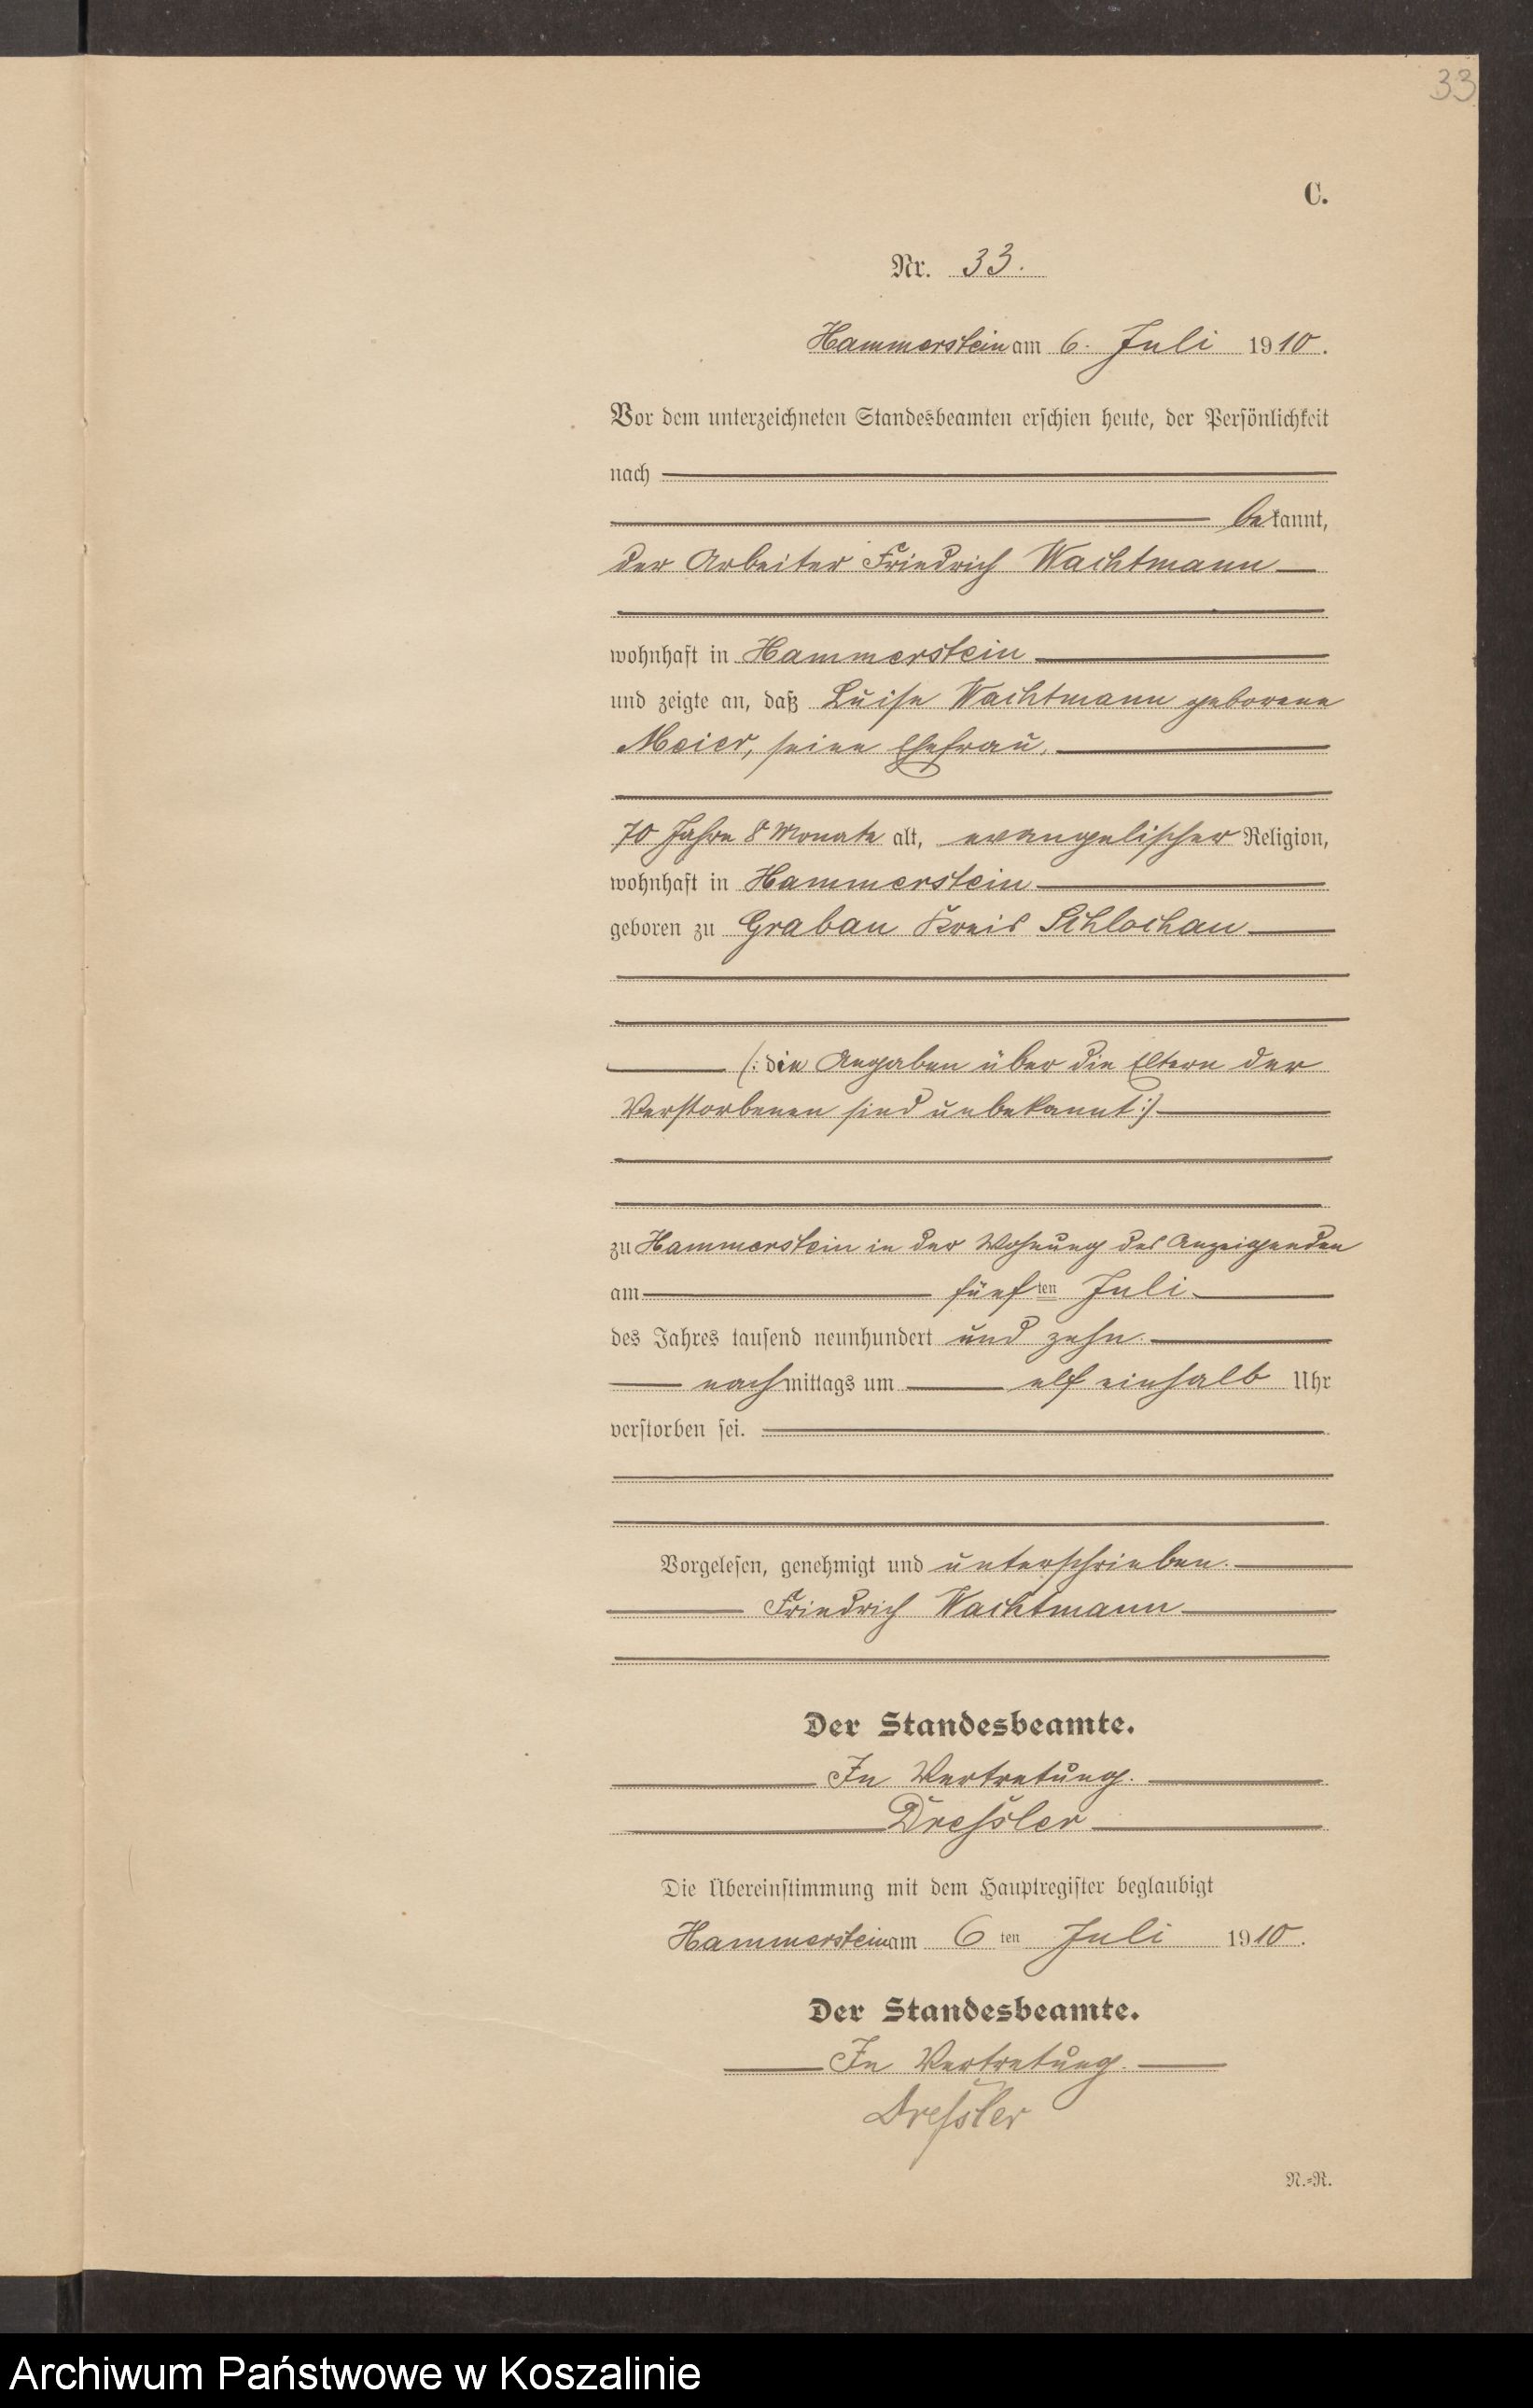 33
C.
Nr. 33.
Hammerstein am 6. Juli 1910.
Vor dem unterzeichneten Standesbeamten erschien heute, der Persönlichkeit
nach
bekannt,
der Arbeiter Friedrich Wachtmann
wohnhaft in Hammerstein
und zeigte an, daß Luise Wachtmann geborene
Meier, seine Ehefrau,
70 Jahre 8 Monate alt, evangelischer Religion,
wohnhaft in Hammerstein
geboren zu Grabau Kreis Schlochau
(: die Angaben über die Eltern der
Verstorbenen sind unbekannt :)
zu Hammerstein in der Wohnung des Anzeigenden
am fünften Juli
des Jahres tausend neunhundert und zehn.
nachmittags um elf einhalb Uhr
verstorben sei.
Vorgelesen, genehmigt und unterschrieben.
Friedrich Wachtmann
Der Standesbeamte.
In Vertretung.
Dressler
Die Übereinstimmung mit dem Hauptregister beglaubigt
Hammerstein am 6 ten Juli 1910.
Der Standesbeamte.
In Vertretung.
Dressler
N.-R.
Archiwum Państwowe w Koszalinie